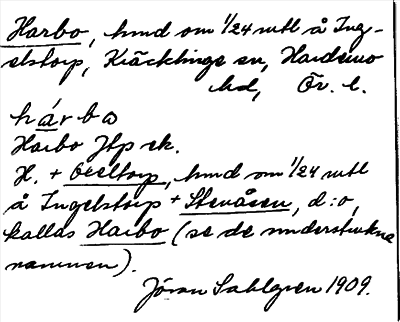 Harbo, hmd om 1/24 mtl å Ing-
elstorp, Kräcklinge sn, Hardemo
hd, Ör. l.
hárbo
Harbo Jtp ek.
H. + Geeltorp, hmd om 1/24 mtl
å Ingelstorp + Stenåsen, d:o,
kallas Harbo (se de understrukna
namnen).
Jöran Sahlgren 1909.